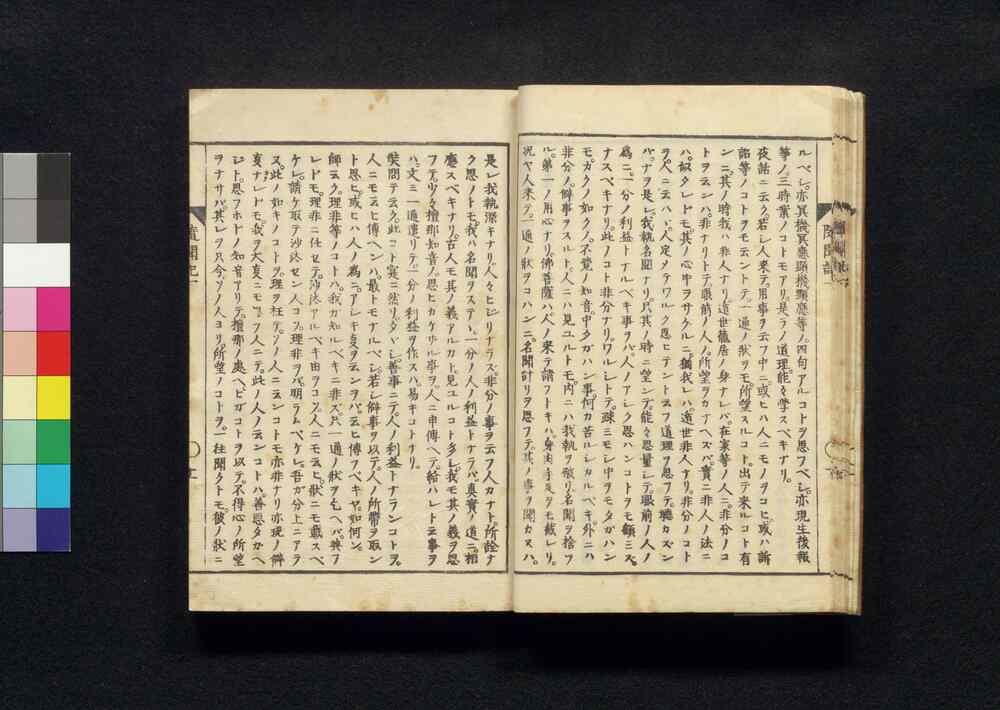 ルベシ亦冥機冥應顕機顕應等ノ四句アルコトヲ思フベシ亦現生後報
等ノ三時業ノコトモアリ是ラノ道理能々学スベキナリ。
夜話ニ云ク若シ人来テ用事ヲ云フ中ニ或ヒハ人ニモノヲコヒ或ハ訴
訟等ノコトヲモ云ントテ一通ノ状ヲモ所望スルコト出テ来ルコト有
ンニ其ノ時我ハ非人ナリ遁世籠居ノ身ナレバ在家等ノ人ニ非分ノコ
トヲ云ンハ非ナリトテ眼前ノ人ノ所望ヲカナヘズバ實ニ非人ノ法ニ
ハ似タレドモ其ノ心中ヲサクルニ猶我レハ遁世非人ナリ非分ノコト
ヲ人ニ云ハバ人定メテワルク思ヒテントテ云フ道理ヲ思フテ聴カズン
バナヲ是レ我執名聞ナリ只其ノ時ニ望ンデ能々思量シテ眼前ノ人ノ
為ニ一分ノ利益トナルベキ事ヲバ人ノアシク思ハンコトヲモ顧ミズ
ナスベキナリ此ノコト非分ナリワルシトテ疎ミモシ中ヲモタガハン
モカクノ如クノ不覚ノ知音中タガハン事何カ苦ルシカルベキ外ニハ
非分ノ僻事ヲスルト人ニハ見ユルトモ内ニハ我執ヲ破リ名聞ヲ捨フ
ル第一ノ用心ナリ佛菩薩ハ人ノ来テ請フトキハ身肉手足ヲモ截レリ
況ヤ人来テ一通ノ状ヲコハンニ名聞計リヲ思フテ其ノ事ヲ聞カヌハ。
是レ我執深キナリ人々ヒジリナラズ非分ノ事ヲ云フ人カナト所詮ナ
ク思ノトモ我ハ名聞ヲステヽ一分ノ人ノ利益トナラバ真實ノ道ニ相
應スベキナリ古人モ其ノ義アルカト見ユルコト多シ我モ其ノ義ヲ思
フテ少々檀那知音ノ思ヒカケザル事ヲ人ニ申傳ヘテ給ハレト云事ヲ
バ文三一通遣リテ一分ノ利益ヲ作スハ易キコトナリ。
奘問テ云ク此コト實ニ然リタヾシ善事ニテ人ノ利益トナランコトヲ
人ニモ云ヒ傳ヘンハ最トモナルベシ若シ僻事ヲ以テ人ノ所帯ヲ取ン
ト思ヒ或ヒハ人ノ為ニアシキ事ヲ云ンヲバ云ヒ傳フベキヤ如何ン。
師云ク理非等ノコトハ我ガ知ルベキニ非ズ只一通ノ状ヲ乞ヘバ與フ
レドモ理非ニ仕セテ沙汰アルベキ由ヲコソ人ニモ云ヒ状ニモ載スベ
ケレ請ケ取テ沙汰セン人コソ理非ヲバ明ラムベケレ吾ガ分上ニアラ
ズ此ノ如キノコトヲ理ヲ枉テソノ人ニ云ンコトモ亦非ナリ亦現ノ僻
事ナレドモ我ヲ大事ニモ思フ人ニテ此ノ人ノ云ンコトハ善悪タガヘ
ジト思フホドノ知音アリテ檀那ノ處ヘヒガコトヲ以テ不得心ノ所望
ヲナサバ其レヲ只今ソノ人ヨリ所望ノコトヲ一往聞クトモ彼ノ状ニ